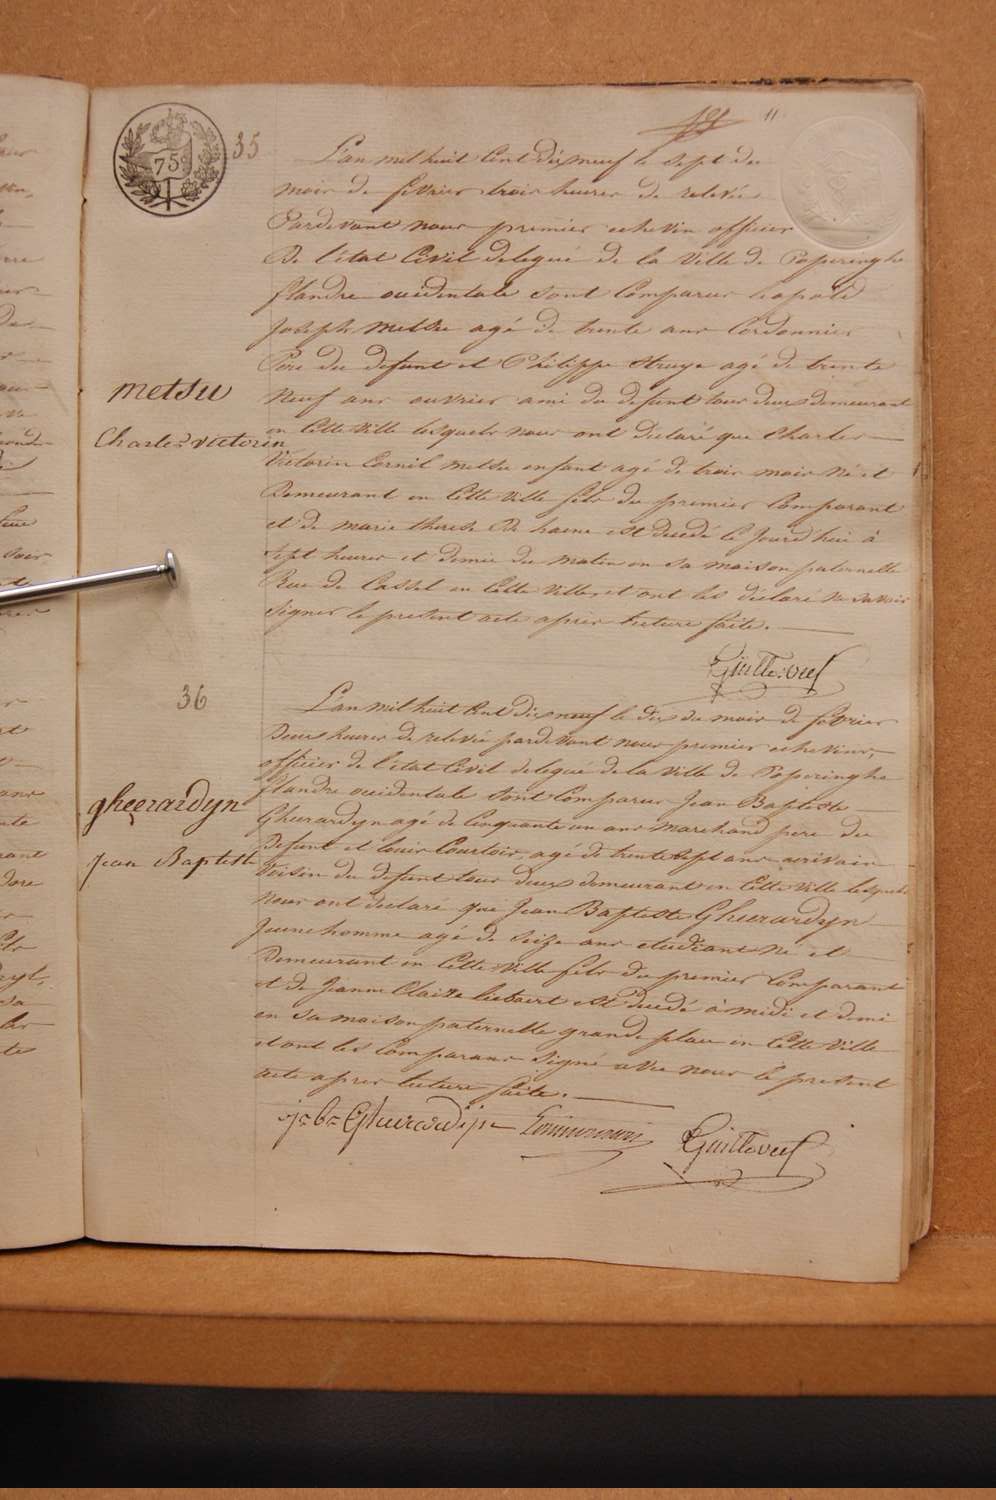 11
75
35
L'an mil huit Cent dix neuf le Sept du
mois de fevrier trois heures de relevée
Pardevant nous premier echevin officier
De l'état Civil delegué de la Ville de Poperinghe
flandre occidentale sont Comparus Leopold
Joseph Metsu agé de trente ans Cordonnier
Pere du defunt et Philippe Struye agé de trente
Neuf ans ouvrier ami du defunt tous deux demeurant
en Cette Ville lesquels nous ont Declaré que Charles
Victorin Cornil Metsu enfant agé de trois mois Né et
Demeurant en Cette Ville fils du premier Comparant
et de marie therese De haene est decedé Ce Jourd'hui à
Sept heures et demie du matin en sa maison paternelle
Rue de Cassel en Cette Ville, et ont les déclaré Ne savoir
Signer le present acte après lecture faite.
metsu
Charles victorin
36
L'an mil huit Cent dix neuf le dix du mois de fevrier
Deux heures de relevée pardevant nous premier echevin,
officier de l'état Civil delegué de la Ville de Poperinghe
flandre occidentale sont Comparus Jean Baptiste
Gheerardyn agé de Cinquante un ans Marchand pere du
Defunt et louis Courtois, agé de trente Sept ans ecrivain
Voisin du defunt tous deux demeurant en Cette Ville lesquels
Nous ont declaré que Jean Baptiste Gheerardyn
Jeune homme agé de Seize ans etudiant Né et
Demeurant en Cette Ville fils du premier Comparant
et de Jeanne Claire liebaert est decedé à midi et demi
en sa maison paternelle grande place en Cette Ville
et ont les Comparans Signé avec nous le present
acte après lecture faite.
gheerardyn
Jean Baptiste